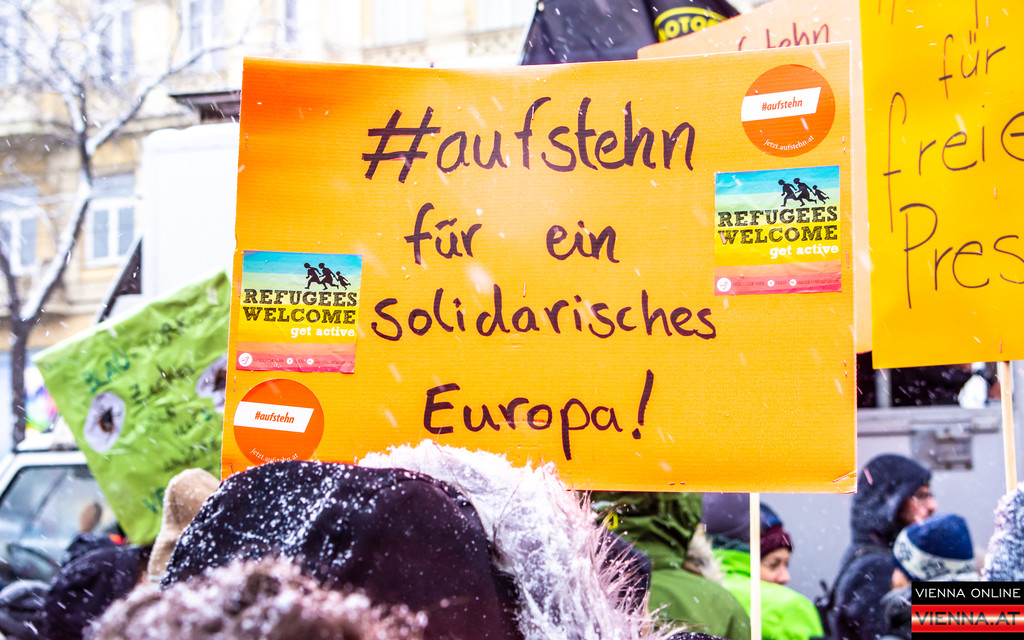 #aufstehn
für ein
solidarisches
Europa!
#aufstehn
jetzt.aufstehn.at
REFUGEES
WELCOME
get active
REFUGEES
WELCOME
get active
#aufstehn
jetzt.aufstehn.at
für
freie
Pres
VIENNA ONLINE
VIENNA.AT